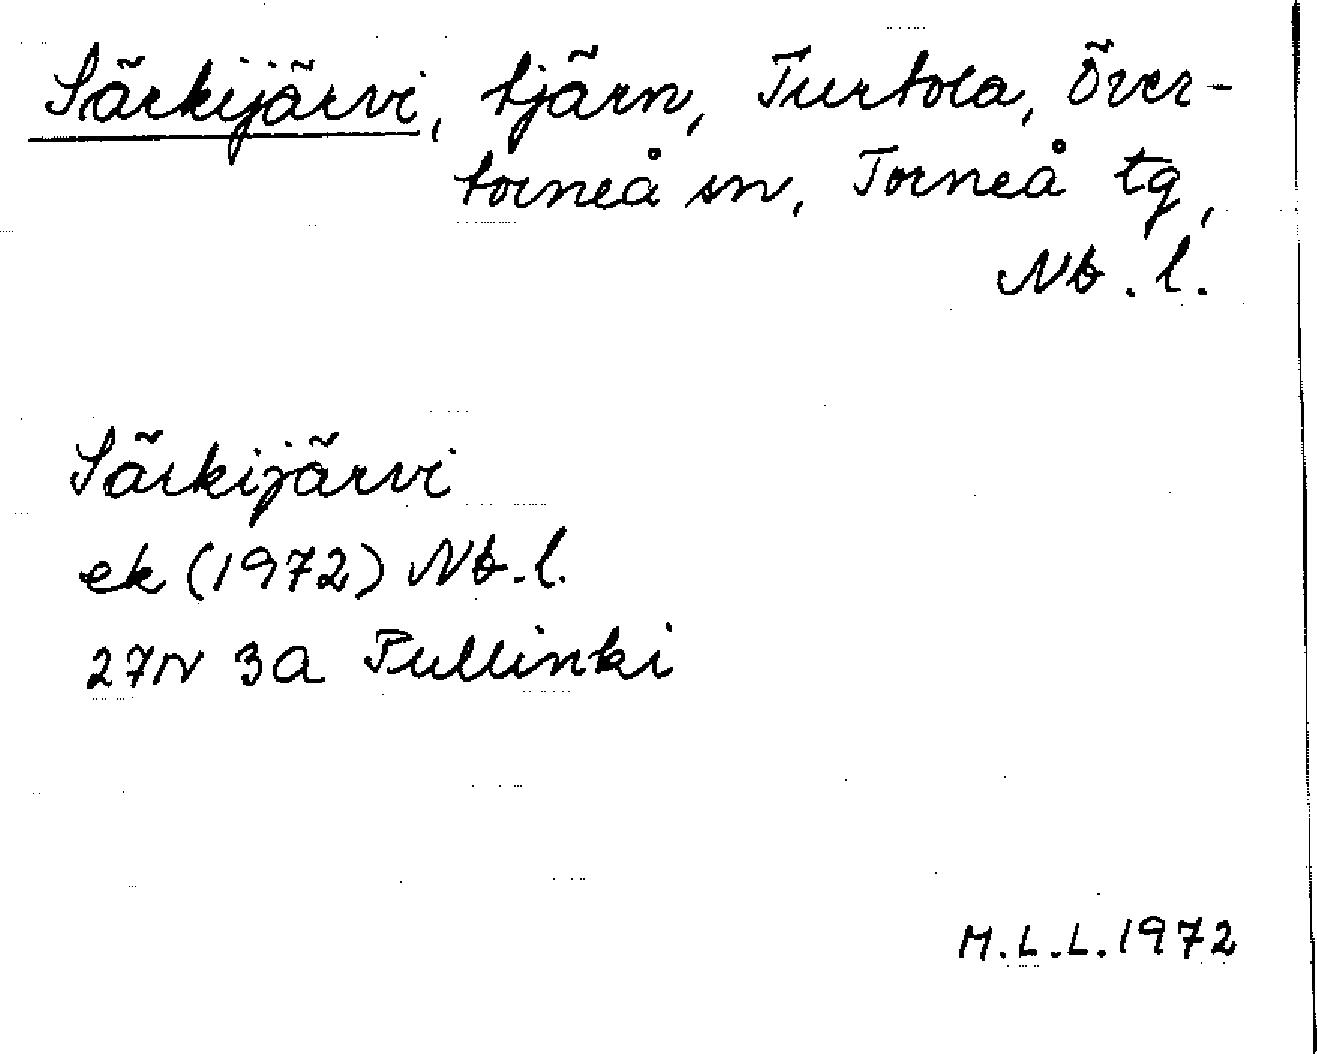 Särkijärvi, tjärn, Turtola, Över-
torneå sn, Torneå tg,
Nb. l.
Särkijärvi
ek (1972) Nb. l.
27N 3a Pullinki
M.L.L. 1972